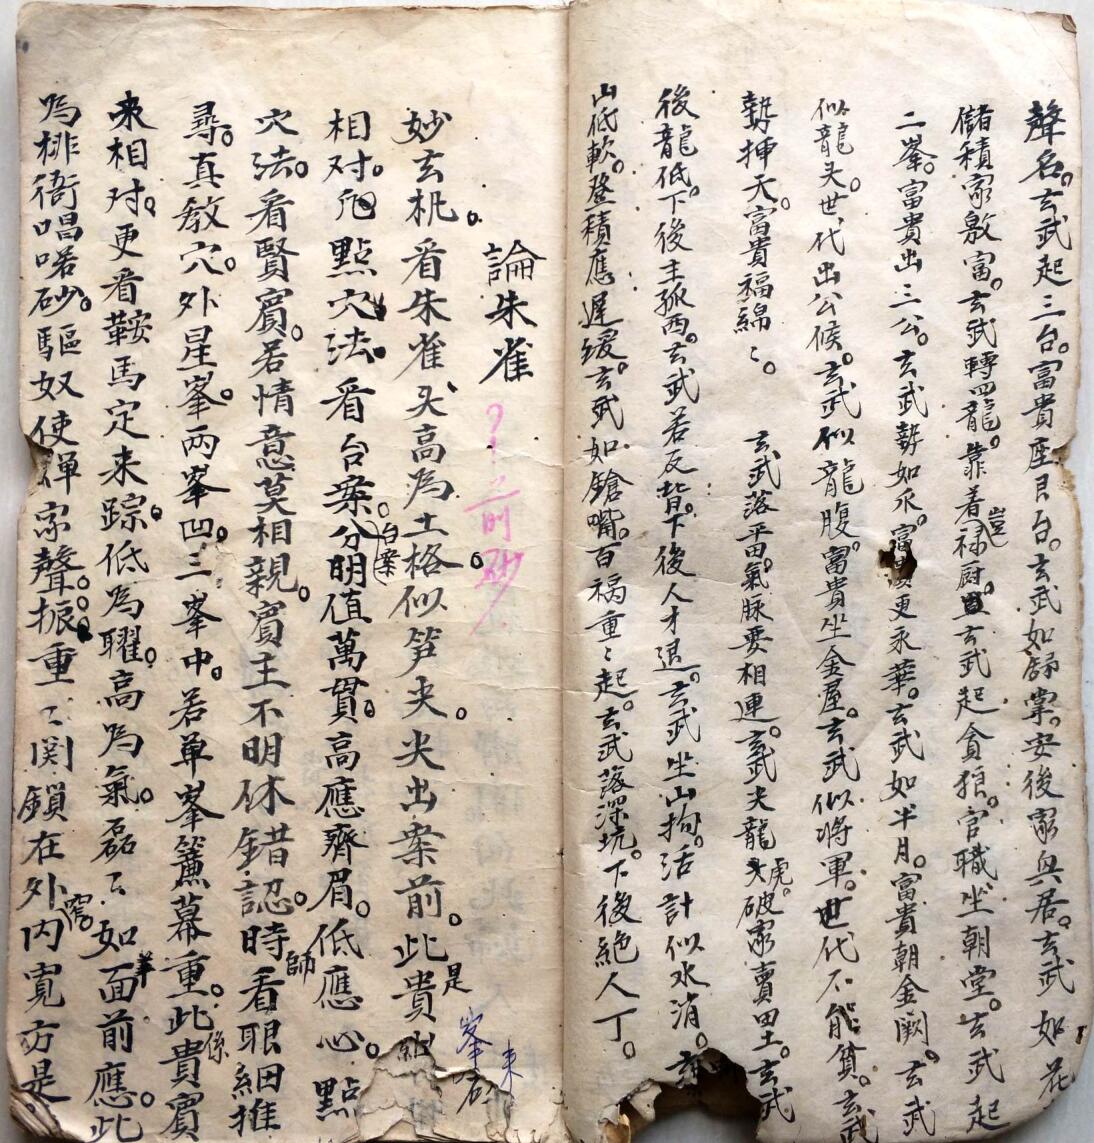 聲名。玄武起三台。富貴座目台。玄武如歸掌。安後家與居。玄武如花
儲積家激富。玄武轉回龍。靠着祿厨。玄武起貪狼。官職坐朝堂。玄武起
二峯。富貴出三公。玄武势如水。富更永華。玄武如半月。富貴朝金闕。玄武
似龍头。世代出公候。玄武似龍腹。富貴坐金屋。玄武似將軍。世代不能貧。玄武
勢挿天。富貴福綿々。玄武落平田。氣脉要相連。玄武夫龍虎。破家賣田土。玄武
後龍低。下後主孤西。玄武若反背。下後人才退。玄武坐山拘。活計似水消。
山低軟。登積應遲缓。玄武如鎗嘴。百禍重々起。玄武落深坑。下後絕人丁。
論朱雀
?前砂
妙玄机。看朱雀头高為土格似笋夹。尖出案前。此是貴
相对。點穴法。看台案。分明值萬貫。高應齊眉。低應心。點
台案
穴法。看賢賓。若情意莫相親。賓主不明休錯認。時師看眼細推
尋。真教穴。外星峯。兩峯凹。三峯中。若单峯簾幕重。此係貴賓
來相对。更看鞍馬定来踪。低為曜。高為氣。磊々如面前應。此
為排衙唱喏砂。驅奴使婢家聲振。重々関鎖在外内寬方是。